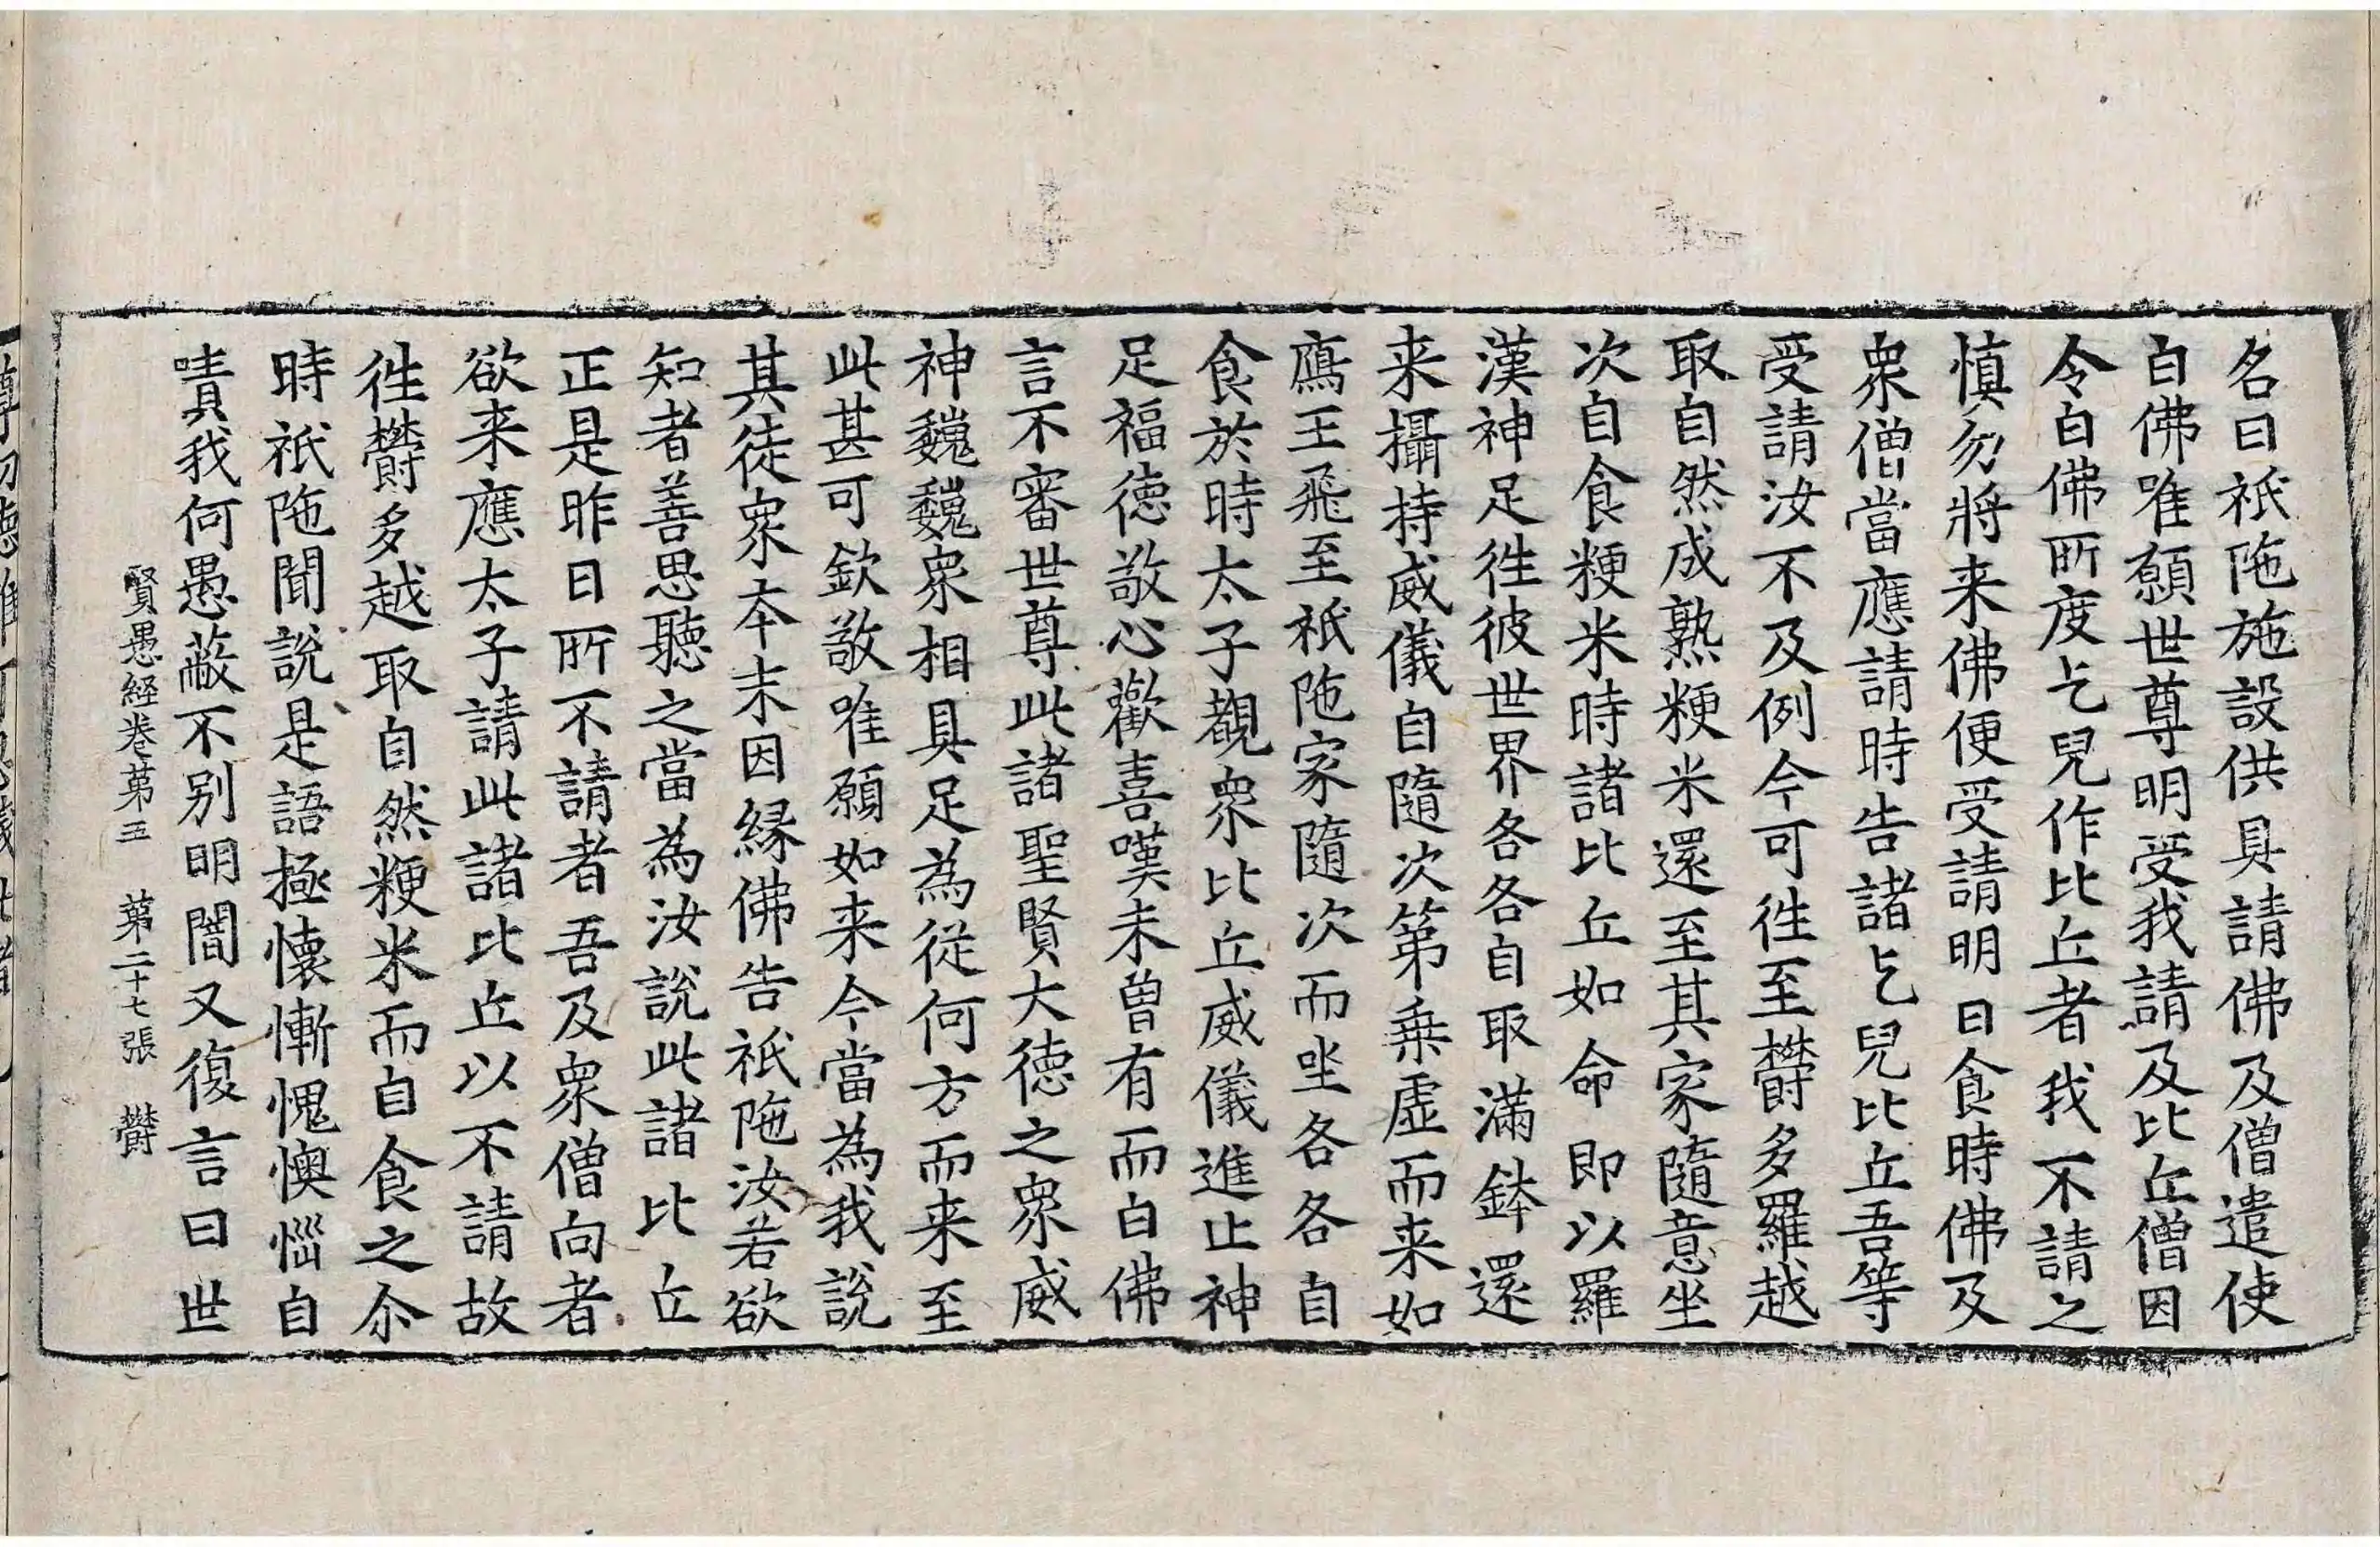 名曰祇陁施設供具請佛及僧遣使
白佛唯願世尊明受我請及比丘僧因
令白佛所度乞兒作比丘者我不請之
慎勿將来佛便受請明日食時佛及
衆僧當應請時告諸乞兒比丘吾等
受請汝不及例今可徃至欝多羅越
取自然成熟粳米還至其家隨意坐
次自食粳米時諸比丘如命即以羅
漢神足徃彼世界各各自取滿鉢還
来攝持威儀自隨次第乗虛而来如
鴈王飛至祇陁家隨次而坐各各自
食於時太子觀衆比丘威儀進止神
足福徳敬心歡喜嘆未曽有而白佛
言不審世尊此諸聖賢大徳之衆威
神巍巍衆相具足為從何方而来至
此甚可欽敬唯願如来今當為我說
其徒衆夲末因緣佛告祇陁汝若欲
知者善思聽之當為汝說此諸比丘
正是昨日所不請者吾及衆僧向者
欲来應太子請此諸比丘以不請故
徃欝多越取自然粳米而自食之尒
時祇陁聞說是語極懷慚愧懊惱自
嘖我何愚蔽不别明闇又復言曰世
賢愚経卷苐五 苐二十七張 欝